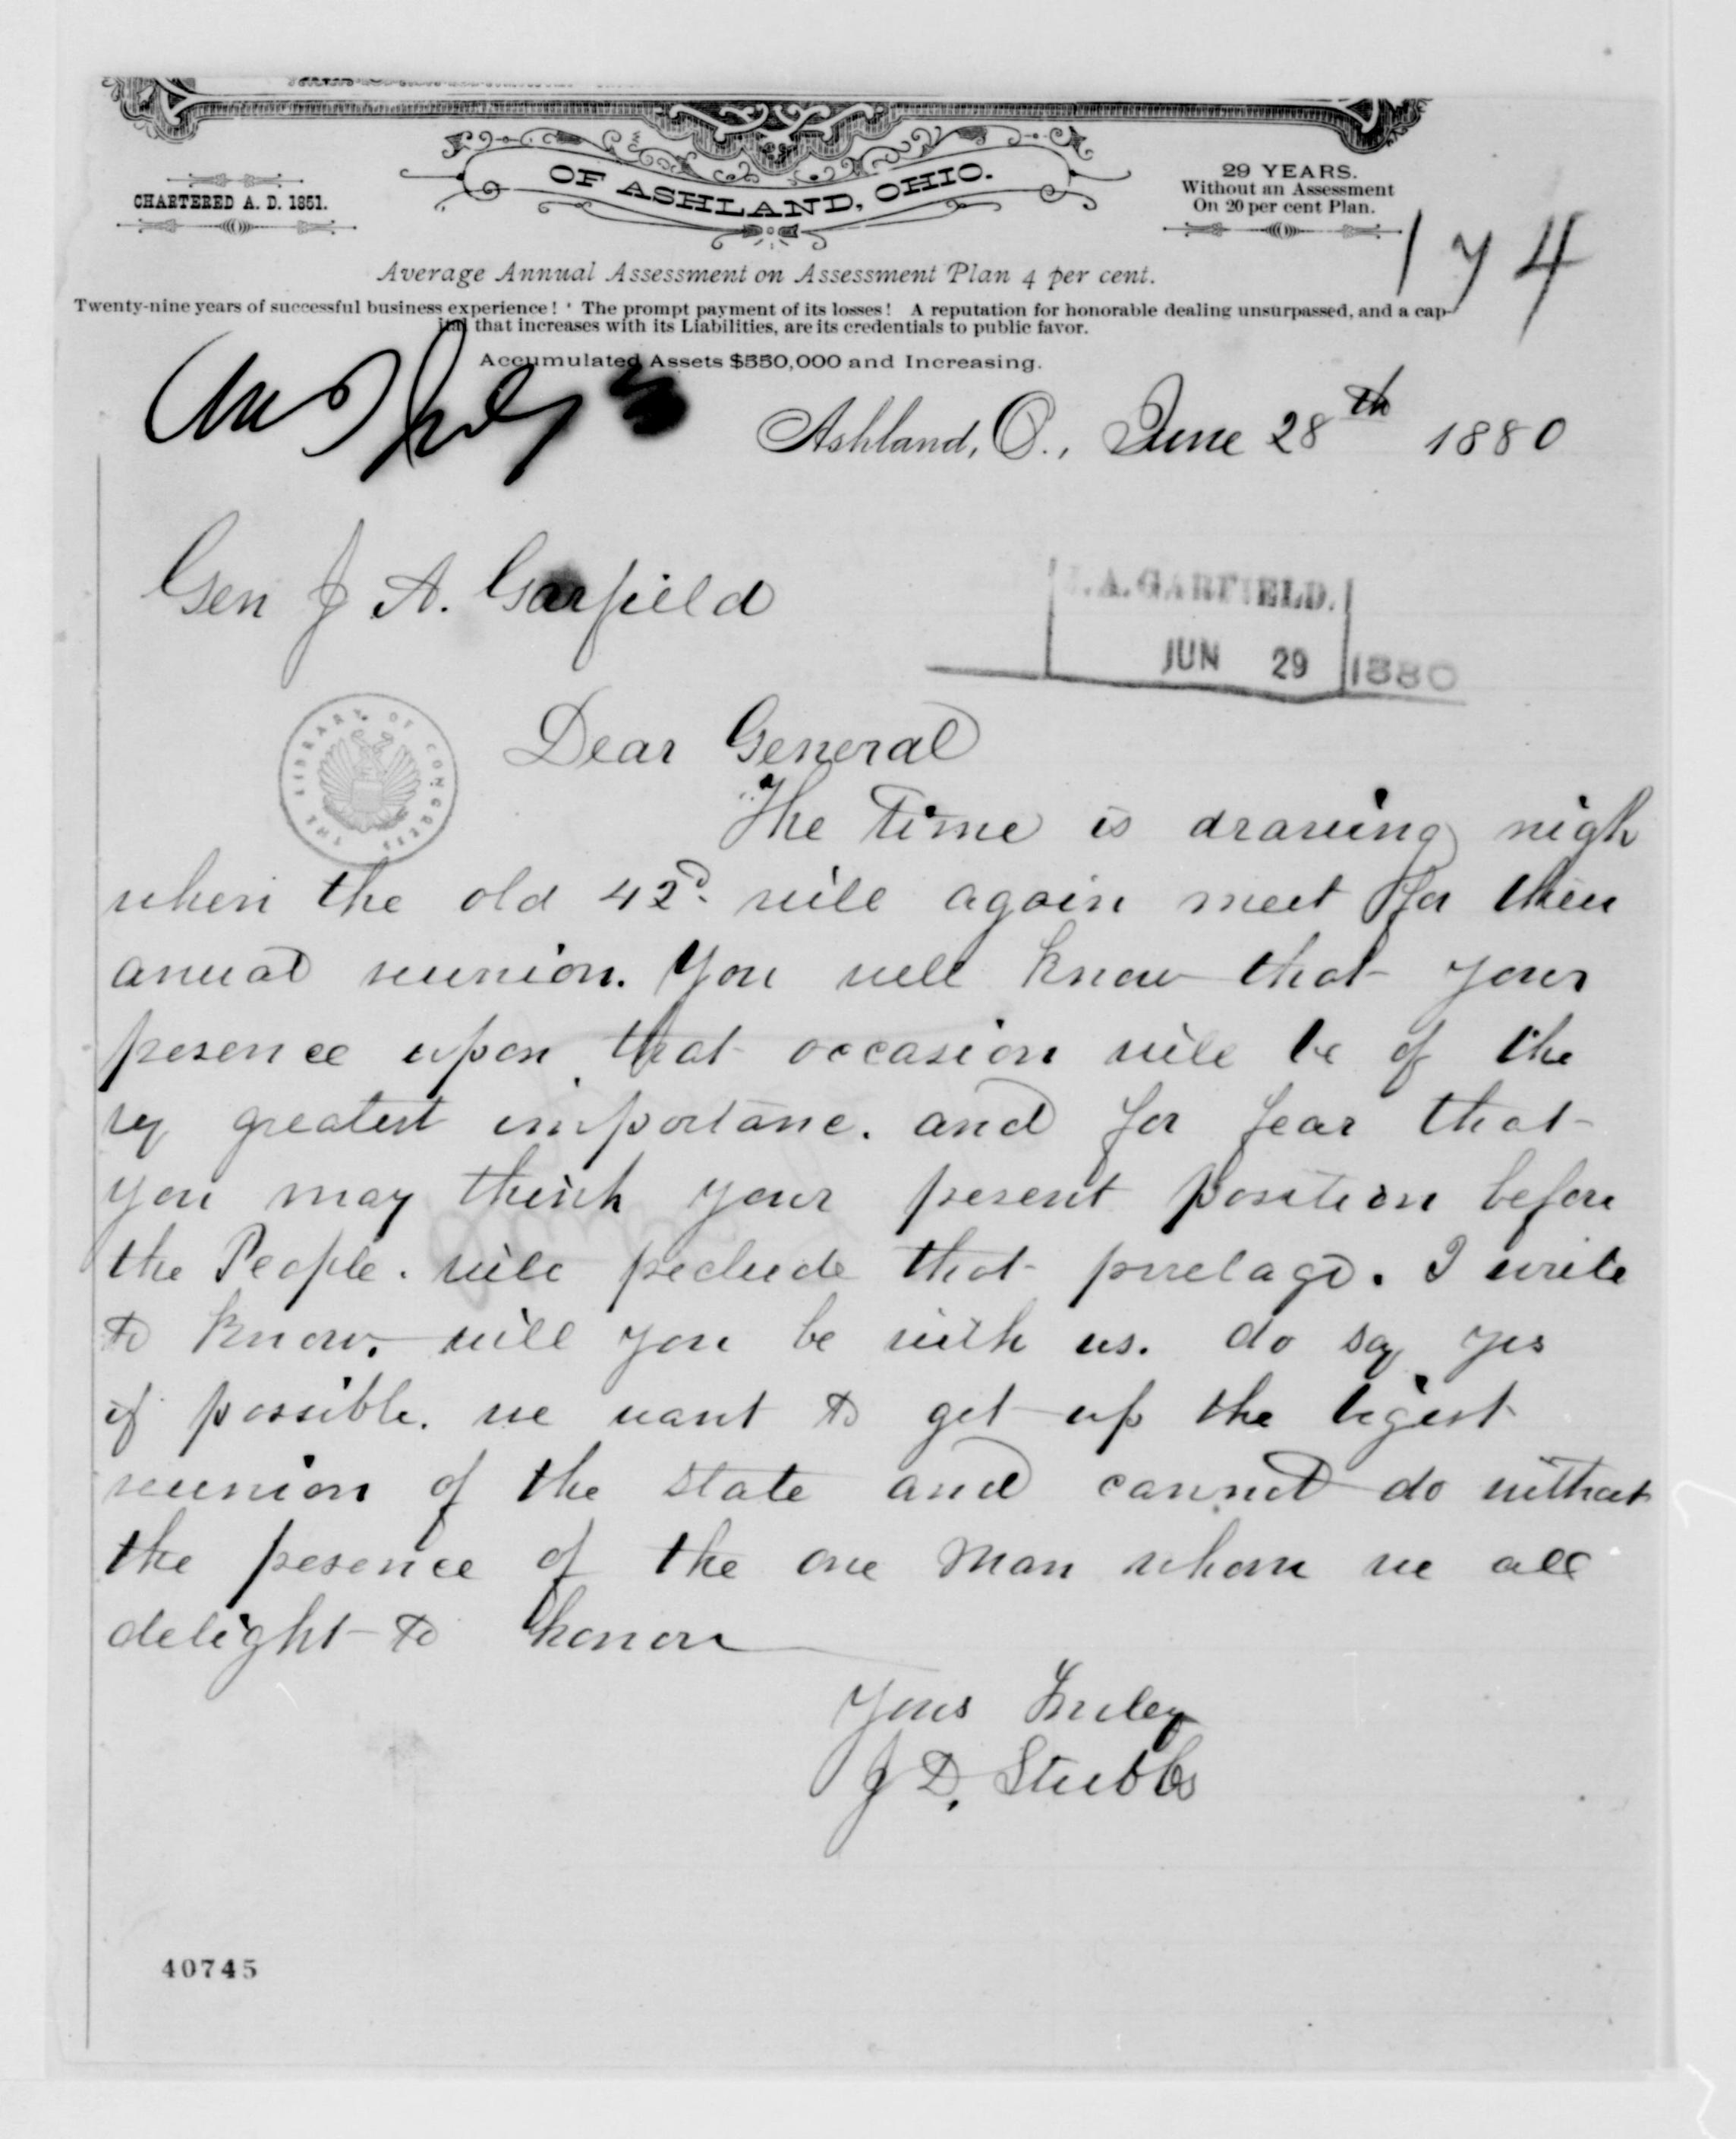 OF ASHLAND, OHIO.
CHARTERED A. D. 1851.
29 YEARS.
Without an Assessment
On 20 per cent Plan.
174
Average Annual Assessment on Assessment Plan 4 per cent.
Twenty-nine years of successful business experience! The prompt payment of its losses! A reputation for honorable dealing unsurpassed, and a cap-
ital that increases with its Liabilities, are its credentials to public favor.
Accumulated Assets $550,000 and Increasing.
Ans July
Ashland, O., June 28th 1880
Gen J A. Garfield
J.A. GARFIELD.
JUN 29 1880
THE LIBRARY OF CONGRESS
Dear General
The Time is drawing nigh
when the old 42d. will again meet for their
anual reunion. You well know that your
presence upon that occasion will be of the
greatest importance. and for fear that
you may think your present position before
the People. will preclude that privelage. I write
to know. will you be with us. do say yes
if possible. we want to get up the bigest
reunion of the state and cannot do without
the presence of the one man whom we all
delight to honor
Yours Truley
J D. Stubbs
40745